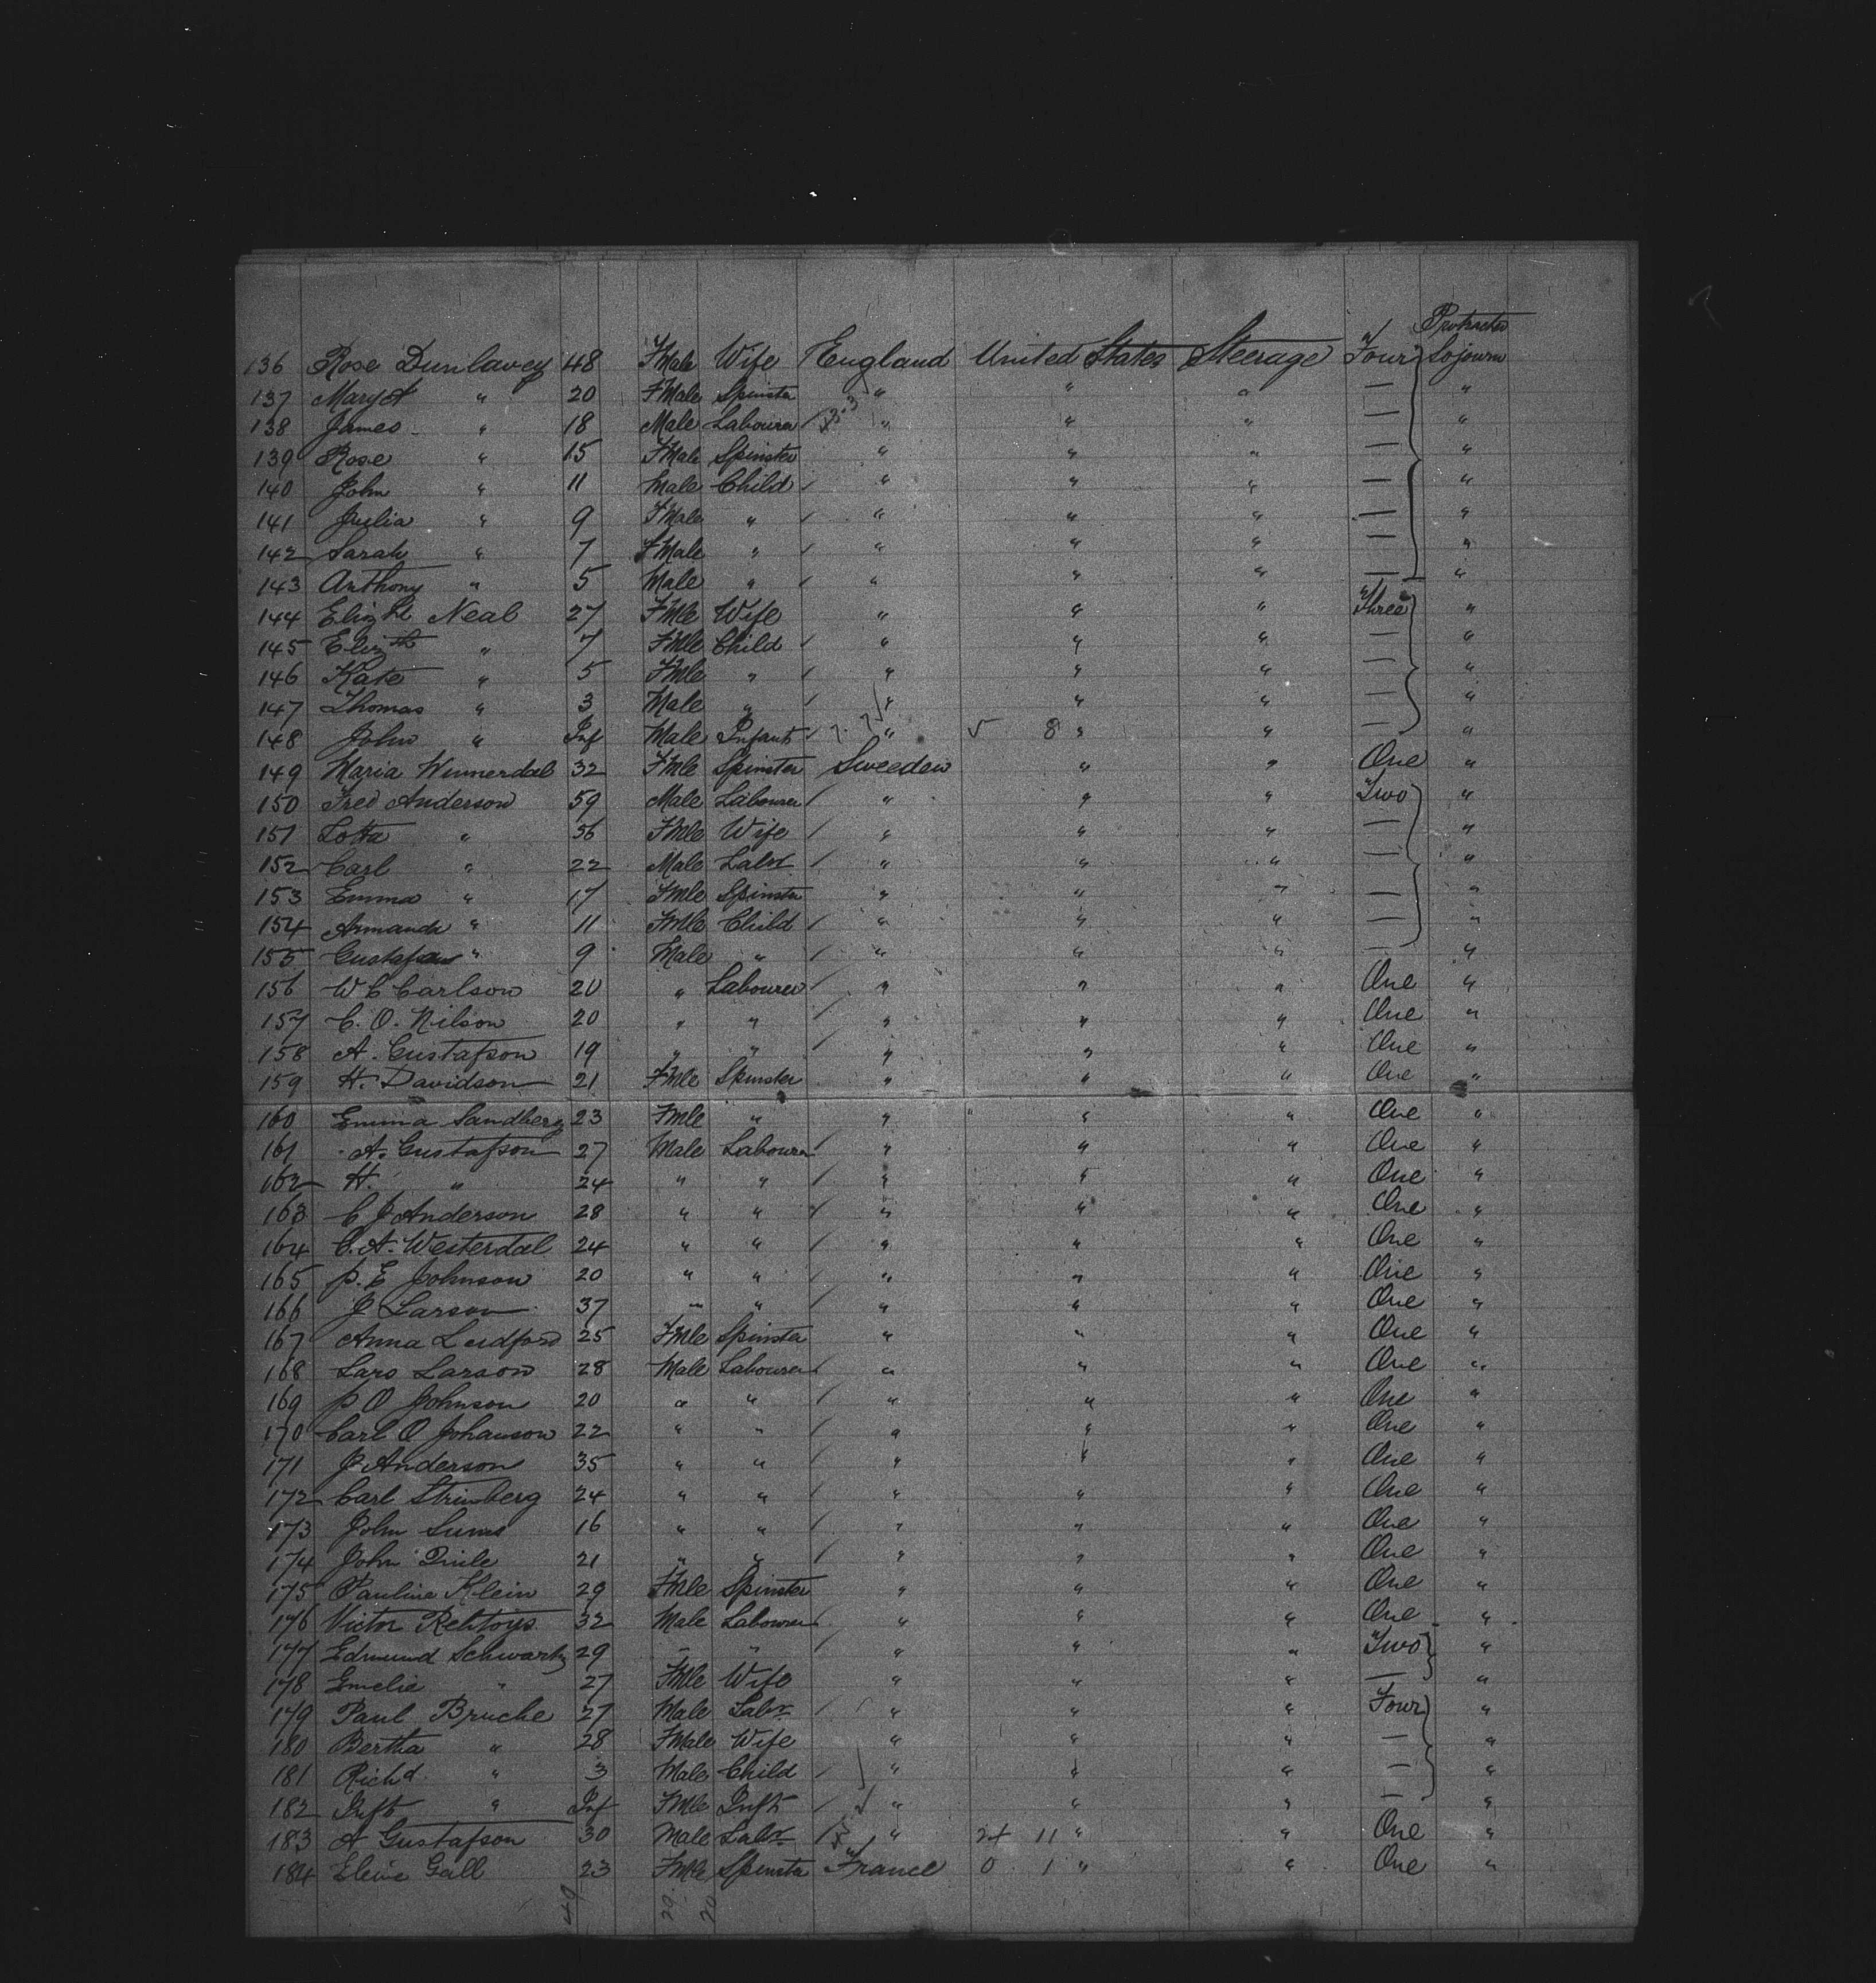 Protracted
136 Rose Dunlavey 48 FMale Wife England United States Steerage Four Sojourn
137 Mary A " 20 FMale Spinster " " " — "
138 James " 18 Male Labourer " " " — "
139 Rose " 15 FMale Spinster " " " — "
140 John " 11 Male Child " " " — "
141 Julia " 9 FMale " " " " — "
142 Sarah " 7 FMale " " " " — "
143 Anthony " 5 Male " " " " — "
144 Elizth Neal 27 FMle Wife " " " Three "
145 Elizth " 7 FMle Child " " " — "
146 Kate " 5 FMle " " " " — "
147 Thomas " 3 Male " " " " — "
148 John " Inf Male Infant " 8 " " — "
149 Maria Winnerdal 32 FMle Spinster Sweeden " " One "
150 Fred Anderson 59 Male Labourer " " " Two "
151 Lotta " 56 FMle Wife " " " — "
152 Carl " 22 Male Labr " " " — "
153 Emma " 17 FMle Spinster " " " — "
154 Armanda " 11 FMle Child " " " — "
155 " 9 Male " " " " — "
156 W C Carlson 20 " Labourer " " " One "
157 C. O. Nilson 20 " " " " " One "
158 A. Gustafson 19 " " " " " One "
159 H. Davidson 21 FMle Spinster " " " One "
160 Emma Sandberg 23 FMle " " " " One "
161 A. Gustafson 27 Male Labourer " " " One "
162 H. " 24 " " " " " One "
163 C J Anderson 28 " " " " " One "
164 C. A. Westerdal 24 " " " " " One "
165 p. E Johnson 20 " " " " " One "
166 J Larson 37 " " " " " One "
167 Anna 25 FMle Spinster " " " One "
168 Lars Larson 28 Male Labourer " " " One "
169 p O Johnson 20 " " " " " One "
170 Carl O Johanson 22 " " " " " One "
171 J Anderson 35 " " " " " One "
172 Carl Strinberg 24 " " " " " One "
173 John 16 " " " " " One "
174 John 21 " " " " " One "
175 Pauline Klein 29 FMle Spinster " " " One "
176 Victor 32 Male Labourer " " " One "
177 Edmund Schwartz 29 " " " " " Two "
178 Emelie " 27 FMle Wife " " " — "
179 Paul Bruche 27 Male Labr " " " Four "
180 Bertha " 28 FMale Wife " " " — "
181 Richd. " 3 Male Child " " " — "
182 Inft " Inf FMle Inft " " " — "
183 A Gustafson 30 Male Labr " 24 11 " " One "
184 Gall 23 FMle Spinster France 0 1 " " One "
49 29. 20